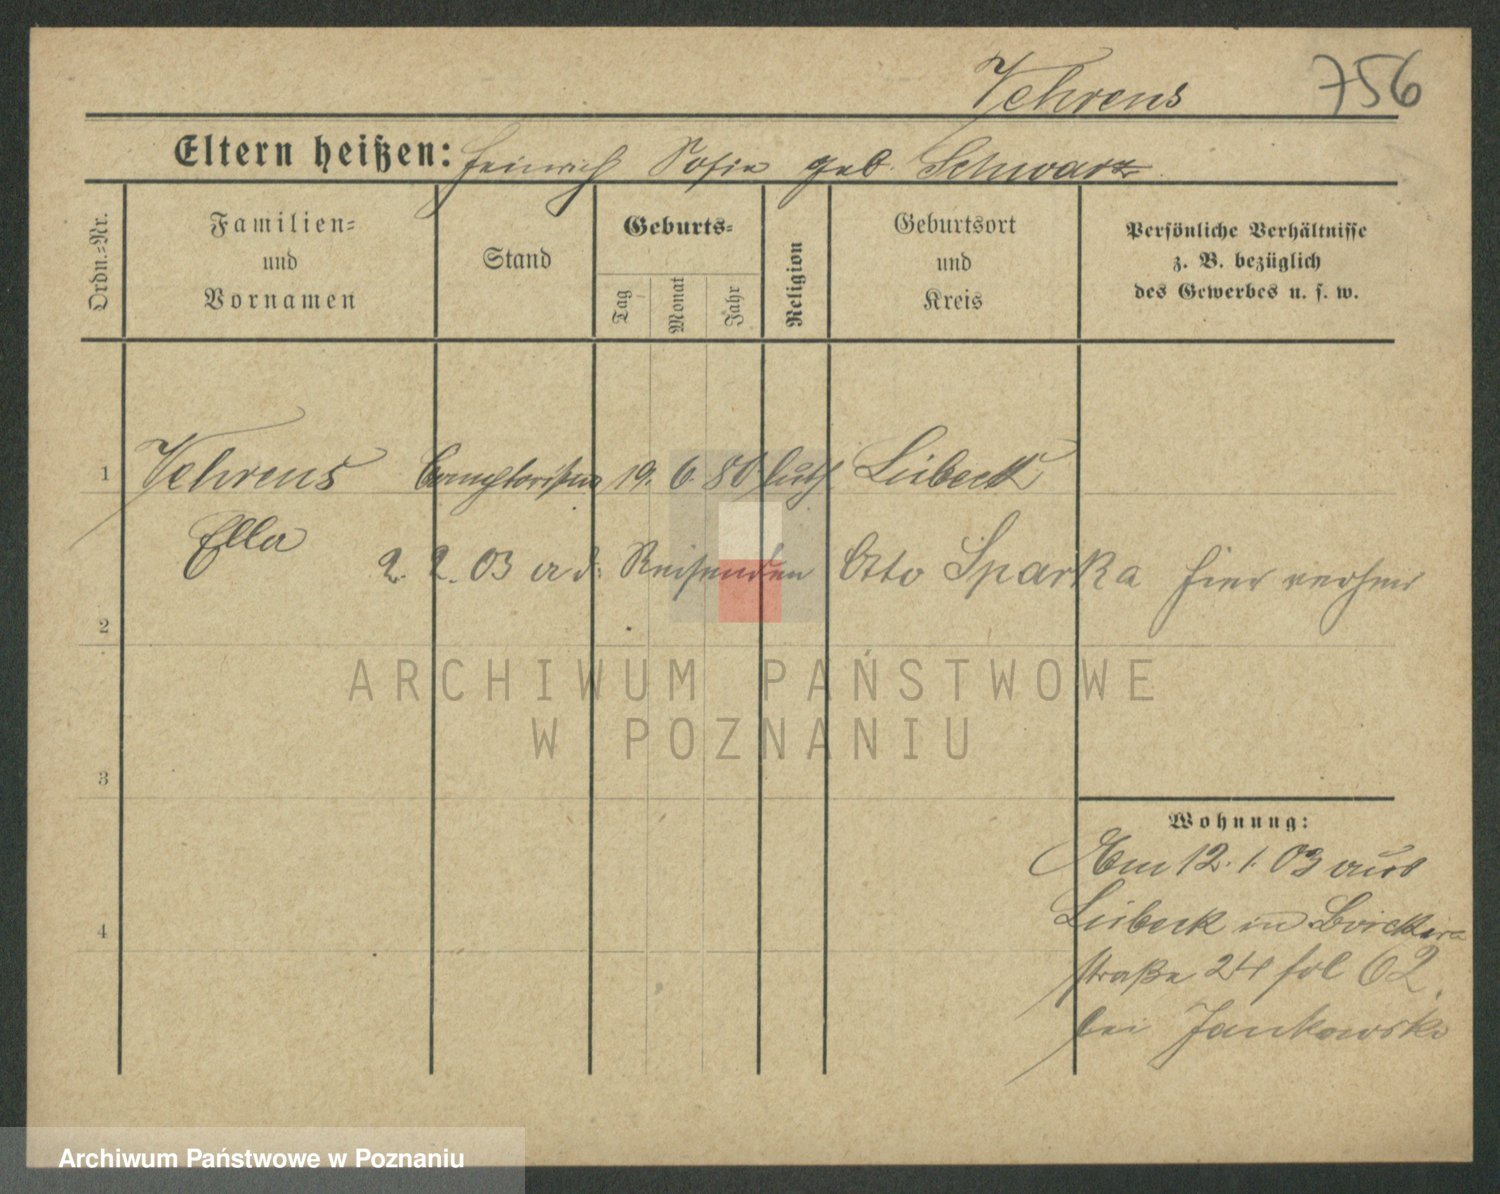 Vehrens 756
Eltern heißen: Heinrich Sofie geb. Schwarz
Ordn.-Nr.
Familien-
und
Vornamen
Stand
Geburts-
Tag
Monat
Jahr
Religion
Geburtsort
und
Kreis
Persönliche Verhältnisse
z. B. bezüglich
des Gewerbes u. s. w.
1 Vehrens Comptoristin 19. 6. 80 luth Lübeck
Ella
2. 2. 03 a d. Reisenden Otto Sparka hier verh
2
3
4
Wohnung:
Am 12. 1. 03 aus
Lübeck in
straße 24 fol 62.
bei Jankowski
ARCHIWUM PAŃSTWOWE
W POZNANIU
Archiwum Państwowe w Poznaniu